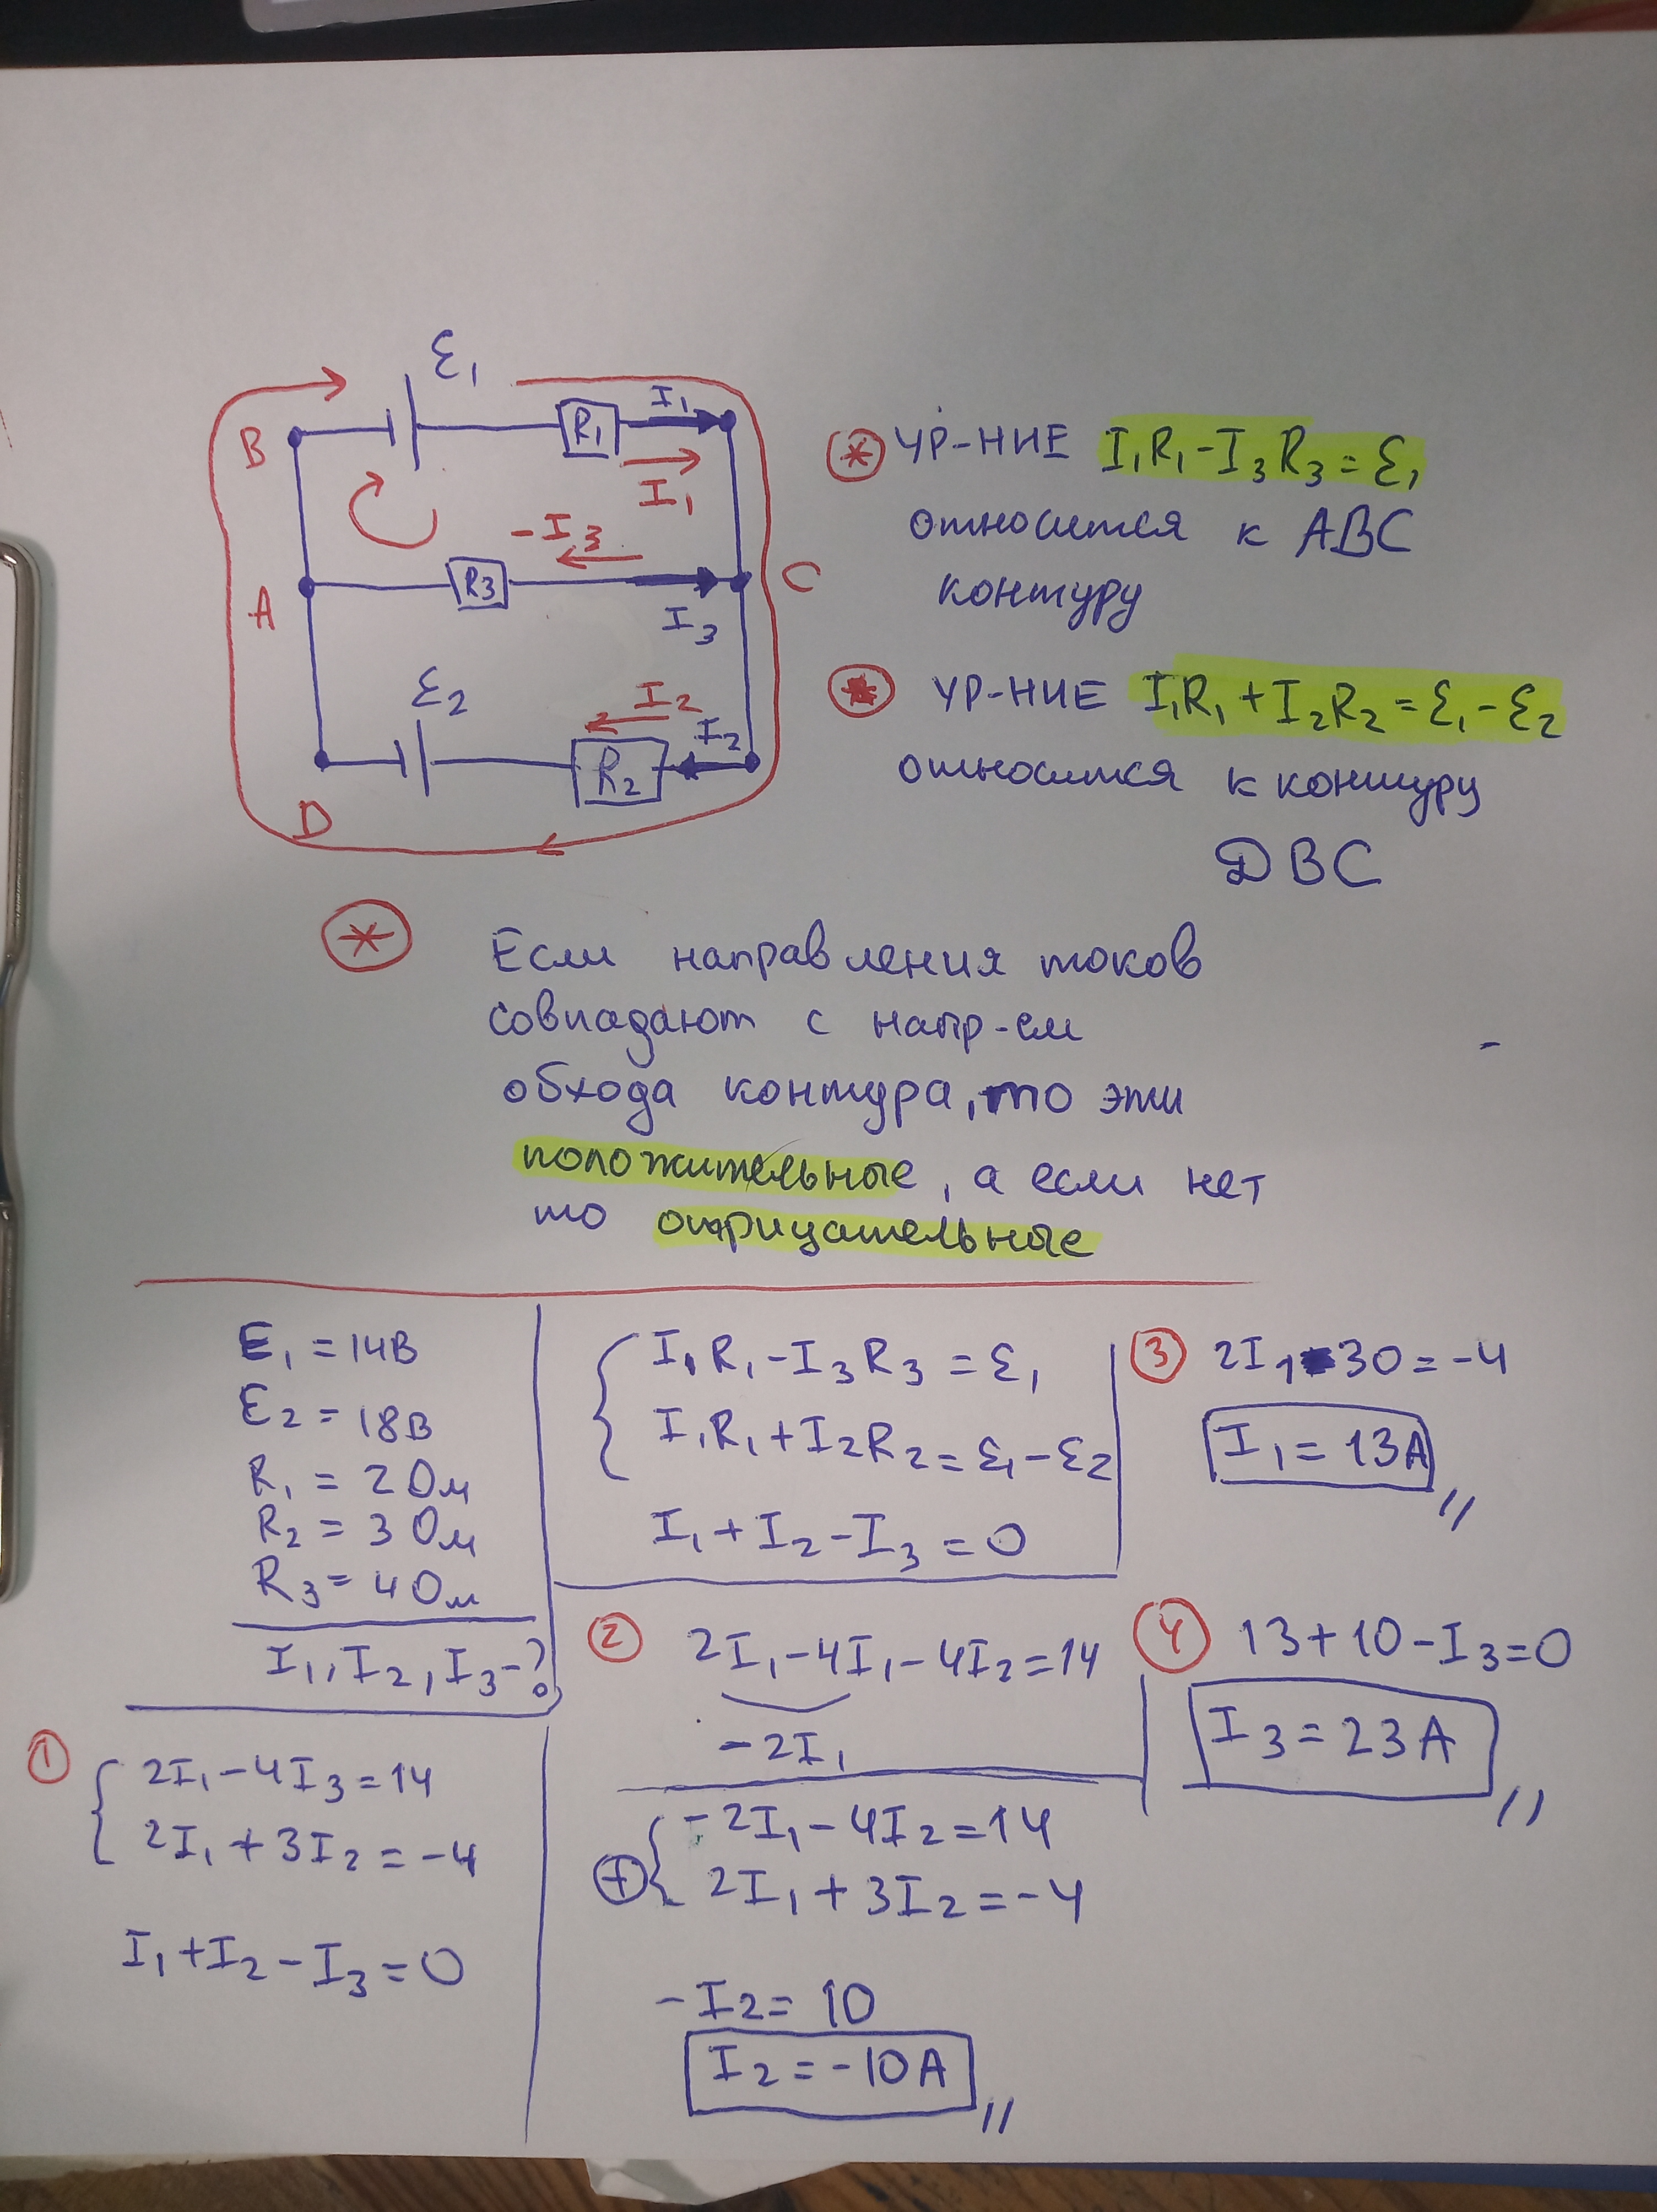 ε₁
I₁
B
R₁
I₁
-I₃
R₃
C
A
I₃
ε₂
I₂
I₂
R₂
D
* УР-НИЕ I₁R₁-I₃R₃=ε₁
относится к ABC
контуру
* УР-НИЕ I₁R₁+I₂R₂=ε₁-ε₂
относится к контуру
DBC
* Если направления токов
совпадают с напр-ем
обхода контура, то эти
положительные, а если нет
то отрицательные
E₁=14В
E₂=18В
R₁=2Ом
R₂=3Ом
R₃=4Ом
I₁, I₂, I₃-?
I₁R₁-I₃R₃=ε₁
I₁R₁+I₂R₂=ε₁-ε₂
I₁+I₂-I₃=0
1
2I₁-4I₃=14
2I₁+3I₂=-4
I₁+I₂-I₃=0
2 2I₁-4I₁-4I₂=14
-2I₁
-2I₁-4I₂=14
+
2I₁+3I₂=-4
-I₂=10
I₂=-10A
3 2I₁-30=-4
I₁=13A
4 13+10-I₃=0
I₃=23A